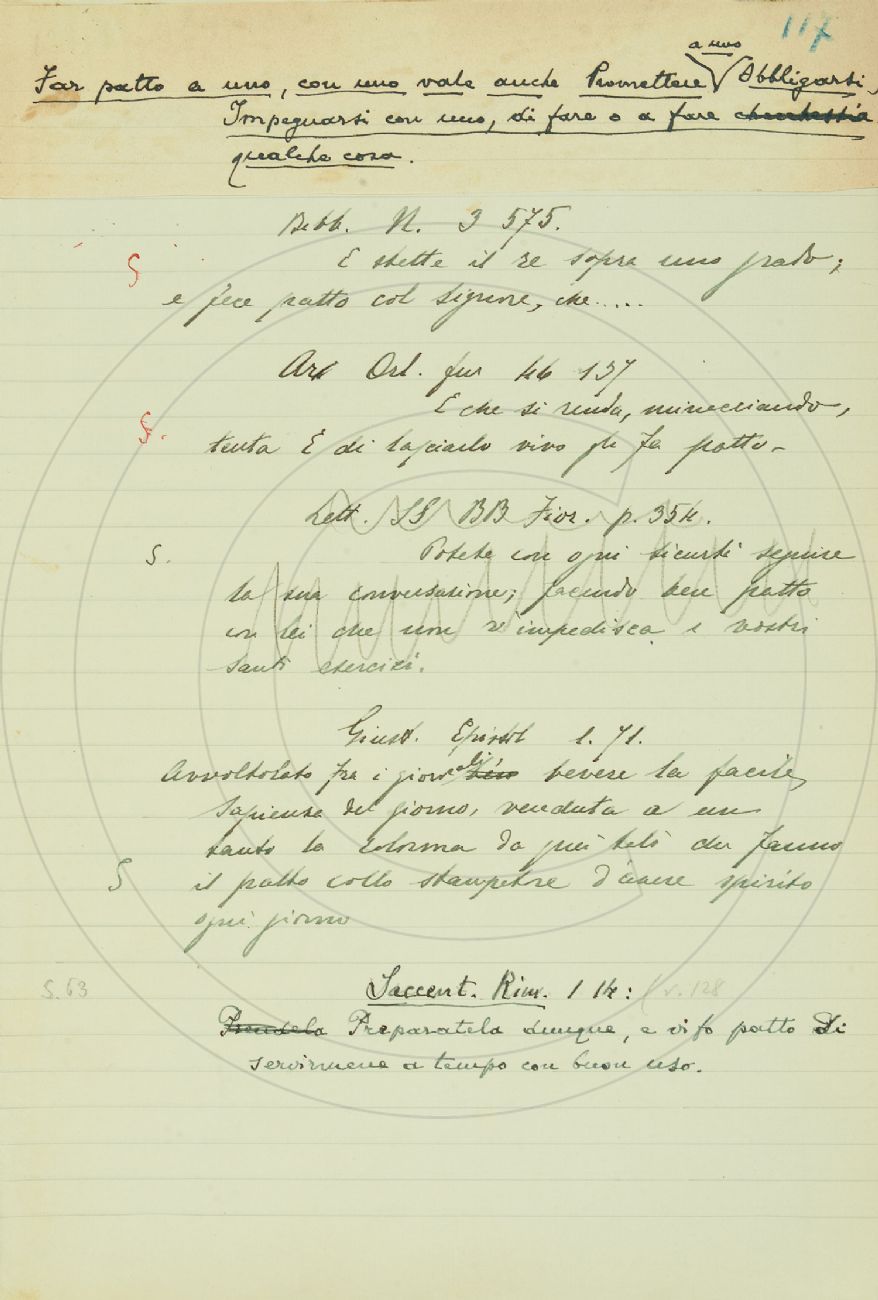 117
a uno
Far patto a uno, con uno vale anche Promettere Obbligarsi,
Impegnarsi con uno, di fare o a fare chechessia
qualche cosa.
Bibb. N. 3 575.
E stette il re sopra uno grado;
S
e fece patto col Signore, che....
Ar Orl. fur 46 137
E che si renda, minacciando,
S.
tenta E di lasciarlo vivo gli fa patto-
Lett. SS BB Fior. p. 354.
S. Potete con ogni sicurtà seguire
la sua conversazione; facendo ben patto
con lei che non v'impedisca i vostri
santi esercizi.
Giust. Epistol 1. 71.
Avvoltolato fra i giornali bevere la facile
Sapienza del giorno, venduta a un
tanto la colonna da quei tali che fanno
S il patto collo stampatore d'avere spirito
ogni giorno
S. 63 Saccent. Rim. 1 14: (v. 128
Prendela Preparatela dunque, e vi fo patto Di
servirmene a tempo con buon uso.